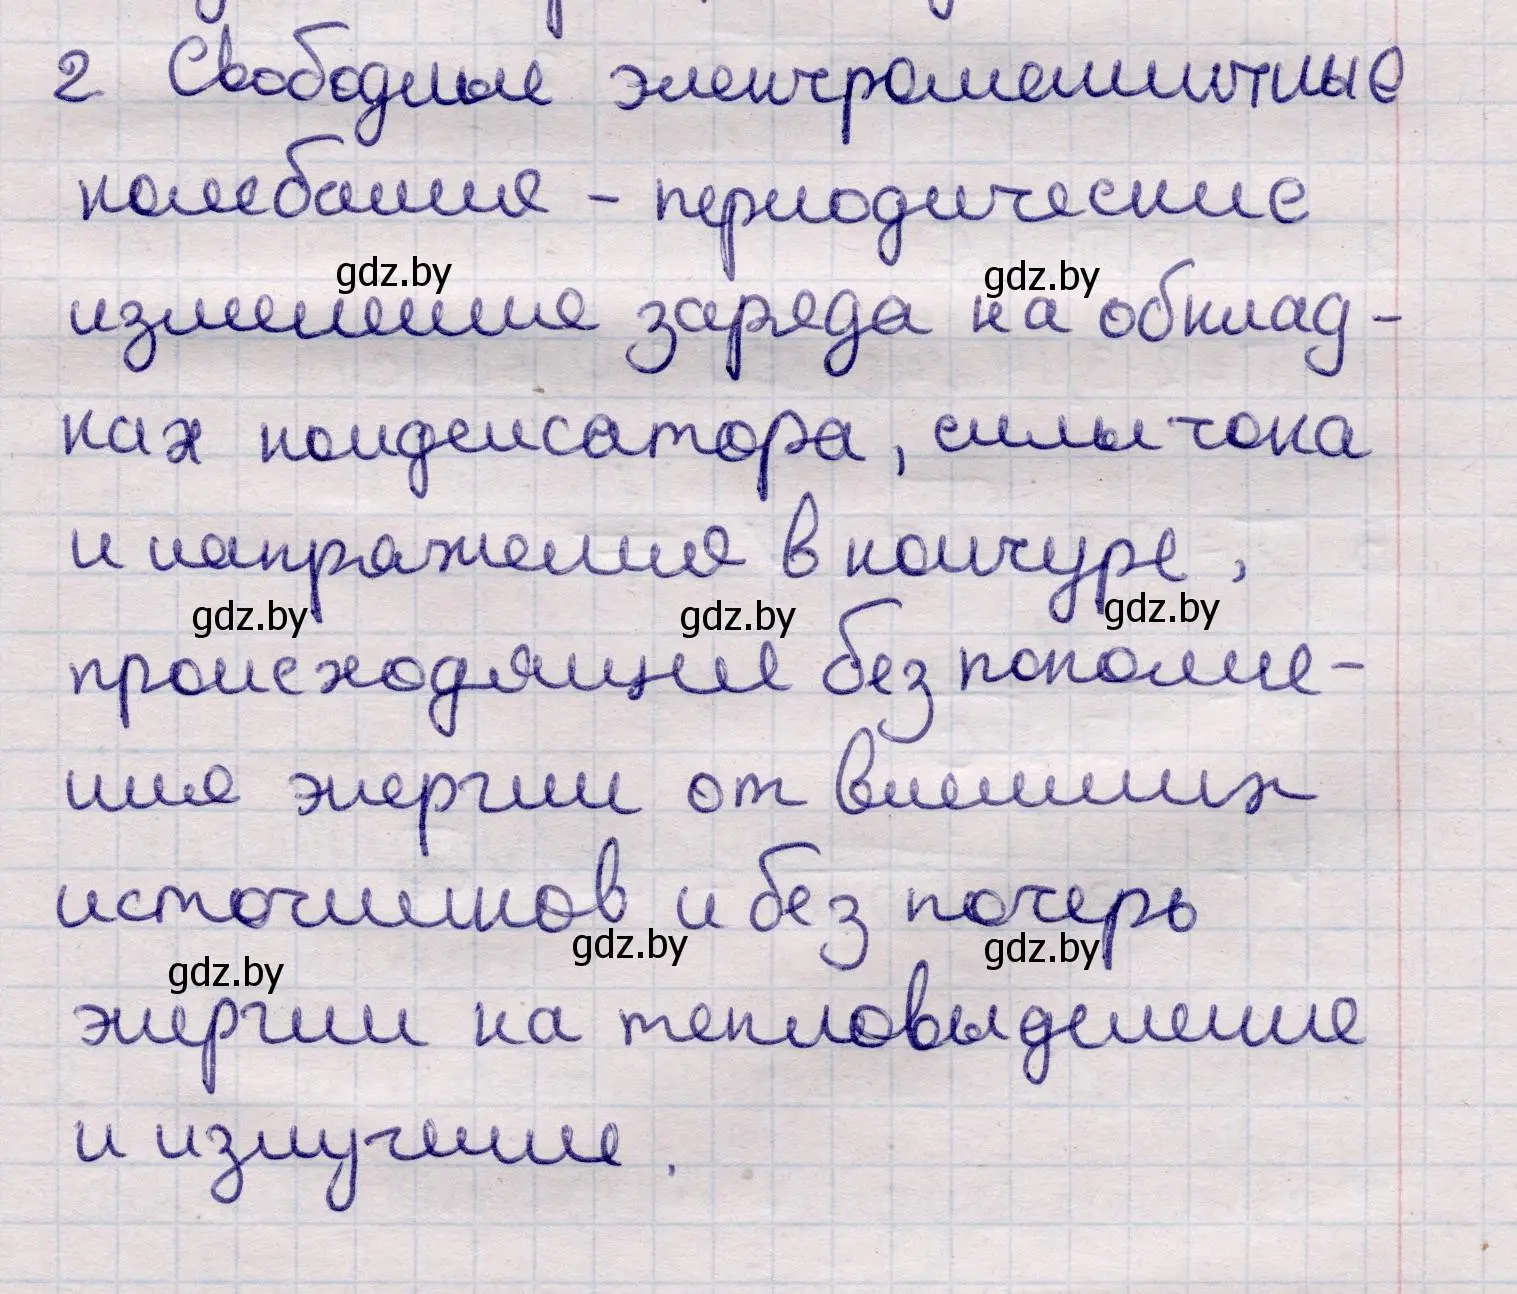 2 Свободные электромагнитные
колебания - периодические
gdz.by gdz.by
изменения заряда на обклад-
ках конденсатора, силы тока
и напряжения в контуре,
gdz.by gdz.by gdz.by
происходящие без пополне-
ния энергии от внешних
источников и без потерь
gdz.by gdz.by gdz.by
энергии на тепловыделение
и излучение.